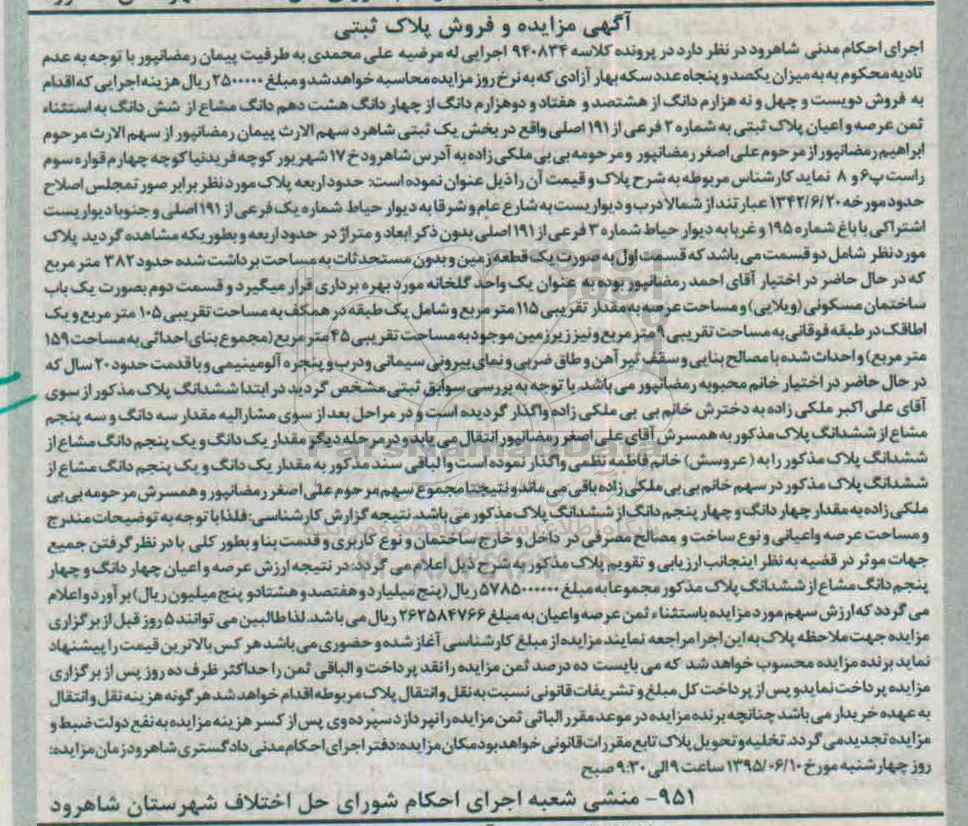 آگهی مزایده و فروش پلاک ثبتی
اجرای احکام مدنی شاهرود در نظر دارد در پرونده کلاسه ۹۴۰۸۳۴ اجرایی له مرضیه علی محمدی به طرفیت پیمان رمضانپور با توجه به عدم
تادیه محکوم به به میزان یکصد و پنجاه عدد سکه بهار آزادی که به نرخ روز مزایده محاسبه خواهد شد و مبلغ ۲۵۰۰۰۰۰ ریال هزینه اجرایی که اقدام
به فروش دویست و چهل و نه هزارم دانگ از هشتصد و هفتاد و دو هزارم دانگ از چهار دانگ هشت دهم دانگ مشاع از شش دانگ به استثناء
ثمن عرصه و اعیان پلاک ثبتی به شماره ۲ فرعی از ۱۹۱ اصلی واقع در بخش یک ثبتی شاهرد سهم الارث پیمان رمضانپور از سهم الارث مرحوم
ابراهیم رمضانپور از مرحوم علی اصغر رمضانپور و مرحومه بی بی ملکی زاده به آدرس شاهرود خ ۱۷ شهریور کوچه فریدنیا کوچه چهارم قواره سوم
راست پ۶ و ۸ نماید کارشناس مربوطه به شرح پلاک و قیمت آن را ذیل عنوان نموده است: حدود اربعه پلاک مورد نظر برابر صورتمجلس اصلاح
حدود مورخه ۱۳۴۲/۶/۲۰ عبارتند از شمالا درب و دیواریست به شارع عام و شرقا به دیوار حیاط شماره یک فرعی از ۱۹۱ اصلی و جنوبا دیواریست
اشتراکی با باغ شماره ۱۹۵ و غربا به دیوار حیاط شماره ۳ فرعی از ۱۹۱ اصلی بدون ذکر ابعاد و متراژ در حدود اربعه و بطوریکه مشاهده گردید پلاک
مورد نظر شامل دو قسمت می باشد که قسمت اول به صورت یک قطعه زمین و بدون مستحدثات به مساحت برداشت شده حدود ۳۸۲ متر مربع
که در حال حاضر در اختیار آقای احمد رمضانپور بوده به عنوان یک واحد گلخانه مورد بهره برداری قرار میگیرد و قسمت دوم بصورت یک باب
ساختمان مسکونی (ویلایی) و مساحت عرصه به مقدار تقریبی ۱۱۵ متر مربع و شامل یک طبقه در همکف به مساحت تقریبی ۱۰۵ متر مربع و یک
اطاقک در طبقه فوقانی به مساحت تقریبی ۹ متر مربع و نیز زیرزمین موجود به مساحت تقریبی ۴۵ متر مربع (مجموع بنای احداثی به مساحت ۱۵۹
متر مربع) و احداث شده با مصالح بنایی و سقف تیر آهن و طاق ضربی و نمای بیرونی سیمانی و درب و پنجره آلومینیمی و با قدمت حدود ۲۰ سال که
در حال حاضر در اختیار خانم محبوبه رمضانپور می باشد. با توجه به بررسی سوابق ثبتی مشخص گردید در ابتدا ششدانگ پلاک مذکور از سوی
آقای علی اکبر ملکی زاده به دخترش خانم بی بی ملکی زاده واگذار گردیده است و در مراحل بعد از سوی مشارالیه مقدار سه دانگ و سه پنجم
مشاع از ششدانگ پلاک مذکور به همسرش آقای علی اصغر رمضانپور انتقال می یابد و در مرحله دیگر مقدار یک دانگ و یک پنجم دانگ مشاع از
ششدانگ پلاک مذکور را به (عروسش) خانم فاطمه نظمی واگذار نموده است و الباقی سند مذکور به مقدار یک دانگ و یک پنجم دانگ مشاع از
ششدانگ پلاک مذکور در سهم خانم بی بی ملکی زاده باقی می ماند و نتیجتا مجموع سهم مرحوم علی اصغر رمضانپور و همسرش مرحومه بی بی
ملکی زاده به مقدار چهار دانگ و چهار پنجم دانگ از ششدانگ پلاک مذکور می باشد. نتیجه گزارش کارشناسی: فلذا با توجه به توضیحات مندرج
و مساحت عرصه واعیانی و نوع ساخت و مصالح مصرفی در داخل و خارج ساختمان و نوع کاربری و قدمت بنا و بطور کلی با در نظر گرفتن جمیع
جهات موثر در قضیه به نظر اینجانب ارزیابی و تقویم پلاک مذکور به شرح ذیل اعلام می گردد: در نتیجه ارزش عرصه و اعیان چهار دانگ و چهار
پنجم دانگ مشاع از ششدانگ پلاک مذکور مجموعا به مبلغ ۵۷۸۵۰۰۰۰۰۰ ریال (پنج میلیارد و هفتصد و هشتاد و پنج میلیون ریال) برآورد و اعلام
می گردد که ارزش سهم مورد مزایده باستثناء ثمن عرصه واعیان به مبلغ ۲۶۲۵۸۴۷۶۶ ریال می باشد. لذا طالبین می توانند ۵ روز قبل از برگزاری
مزایده جهت ملاحظه پلاک به این اجرا مراجعه نمایند مزایده از مبلغ کارشناسی آغاز شده و حضوری می باشد هر کس بالاترین قیمت را پیشنهاد
نماید برنده مزایده محسوب خواهد شد که می بایست ده درصد ثمن مزایده را نقد پرداخت و الباقی ثمن را حداکثر ظرف ده روز پس از برگزاری
مزایده پرداخت نماید و پس از پرداخت کل مبلغ و تشریفات قانونی نسبت به نقل و انتقال پلاک مربوطه اقدام خواهد شد هرگونه هزینه نقل و انتقال
به عهده خریدار می باشد چنانچه برنده مزایده در موعد مقرر الباقی ثمن مزایده را نپردازد سپرده وی پس از کسر هزینه مزایده به نفع دولت ضبط و
مزایده تجدید می گردد. تخلیه و تحویل پلاک تابع مقررات قانونی خواهد بود مکان مزایده: دفتر اجرای احکام مدنی دادگستری شاهرود زمان مزایده:
روز چهارشنبه مورخ ۱۳۹۵/۰۶/۱۰ ساعت ۹ الی ۹:۳۰ صبح
۹۵۱- منشی شعبه اجرای احکام شورای حل اختلاف شهرستان شاهرود